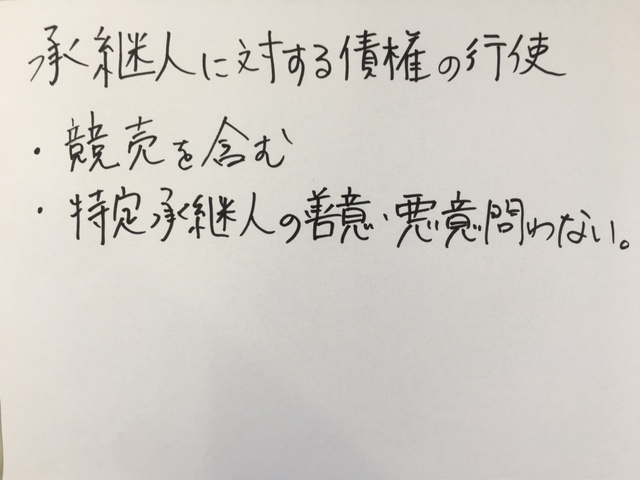 承継人に対する債権の行使
・競売を含む
・特定承継人の善意、悪意問わない。